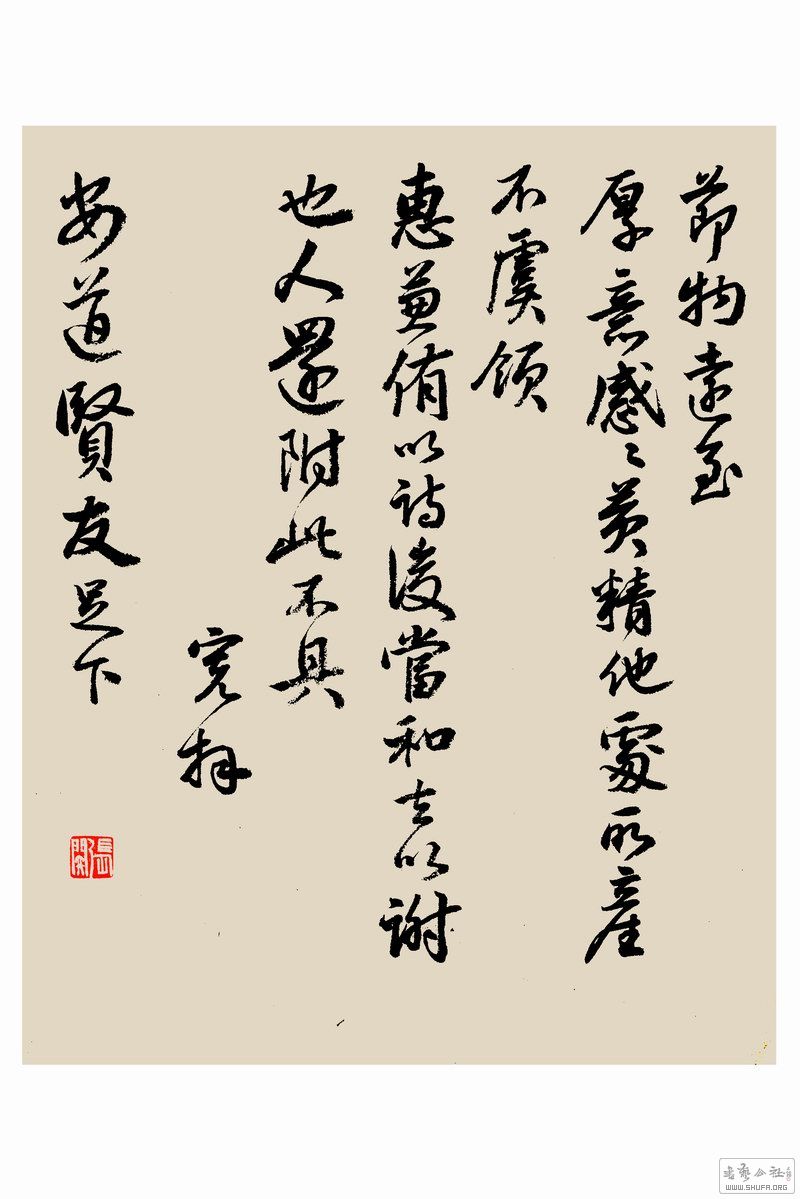 節物遠至
厚意感〻黄精他處所產
不虞領
惠兼侑以詩後當和去以謝
也人還附此不具
寬拜
安道賢友足下
書藝公社
WWW.SHUFA.ORG